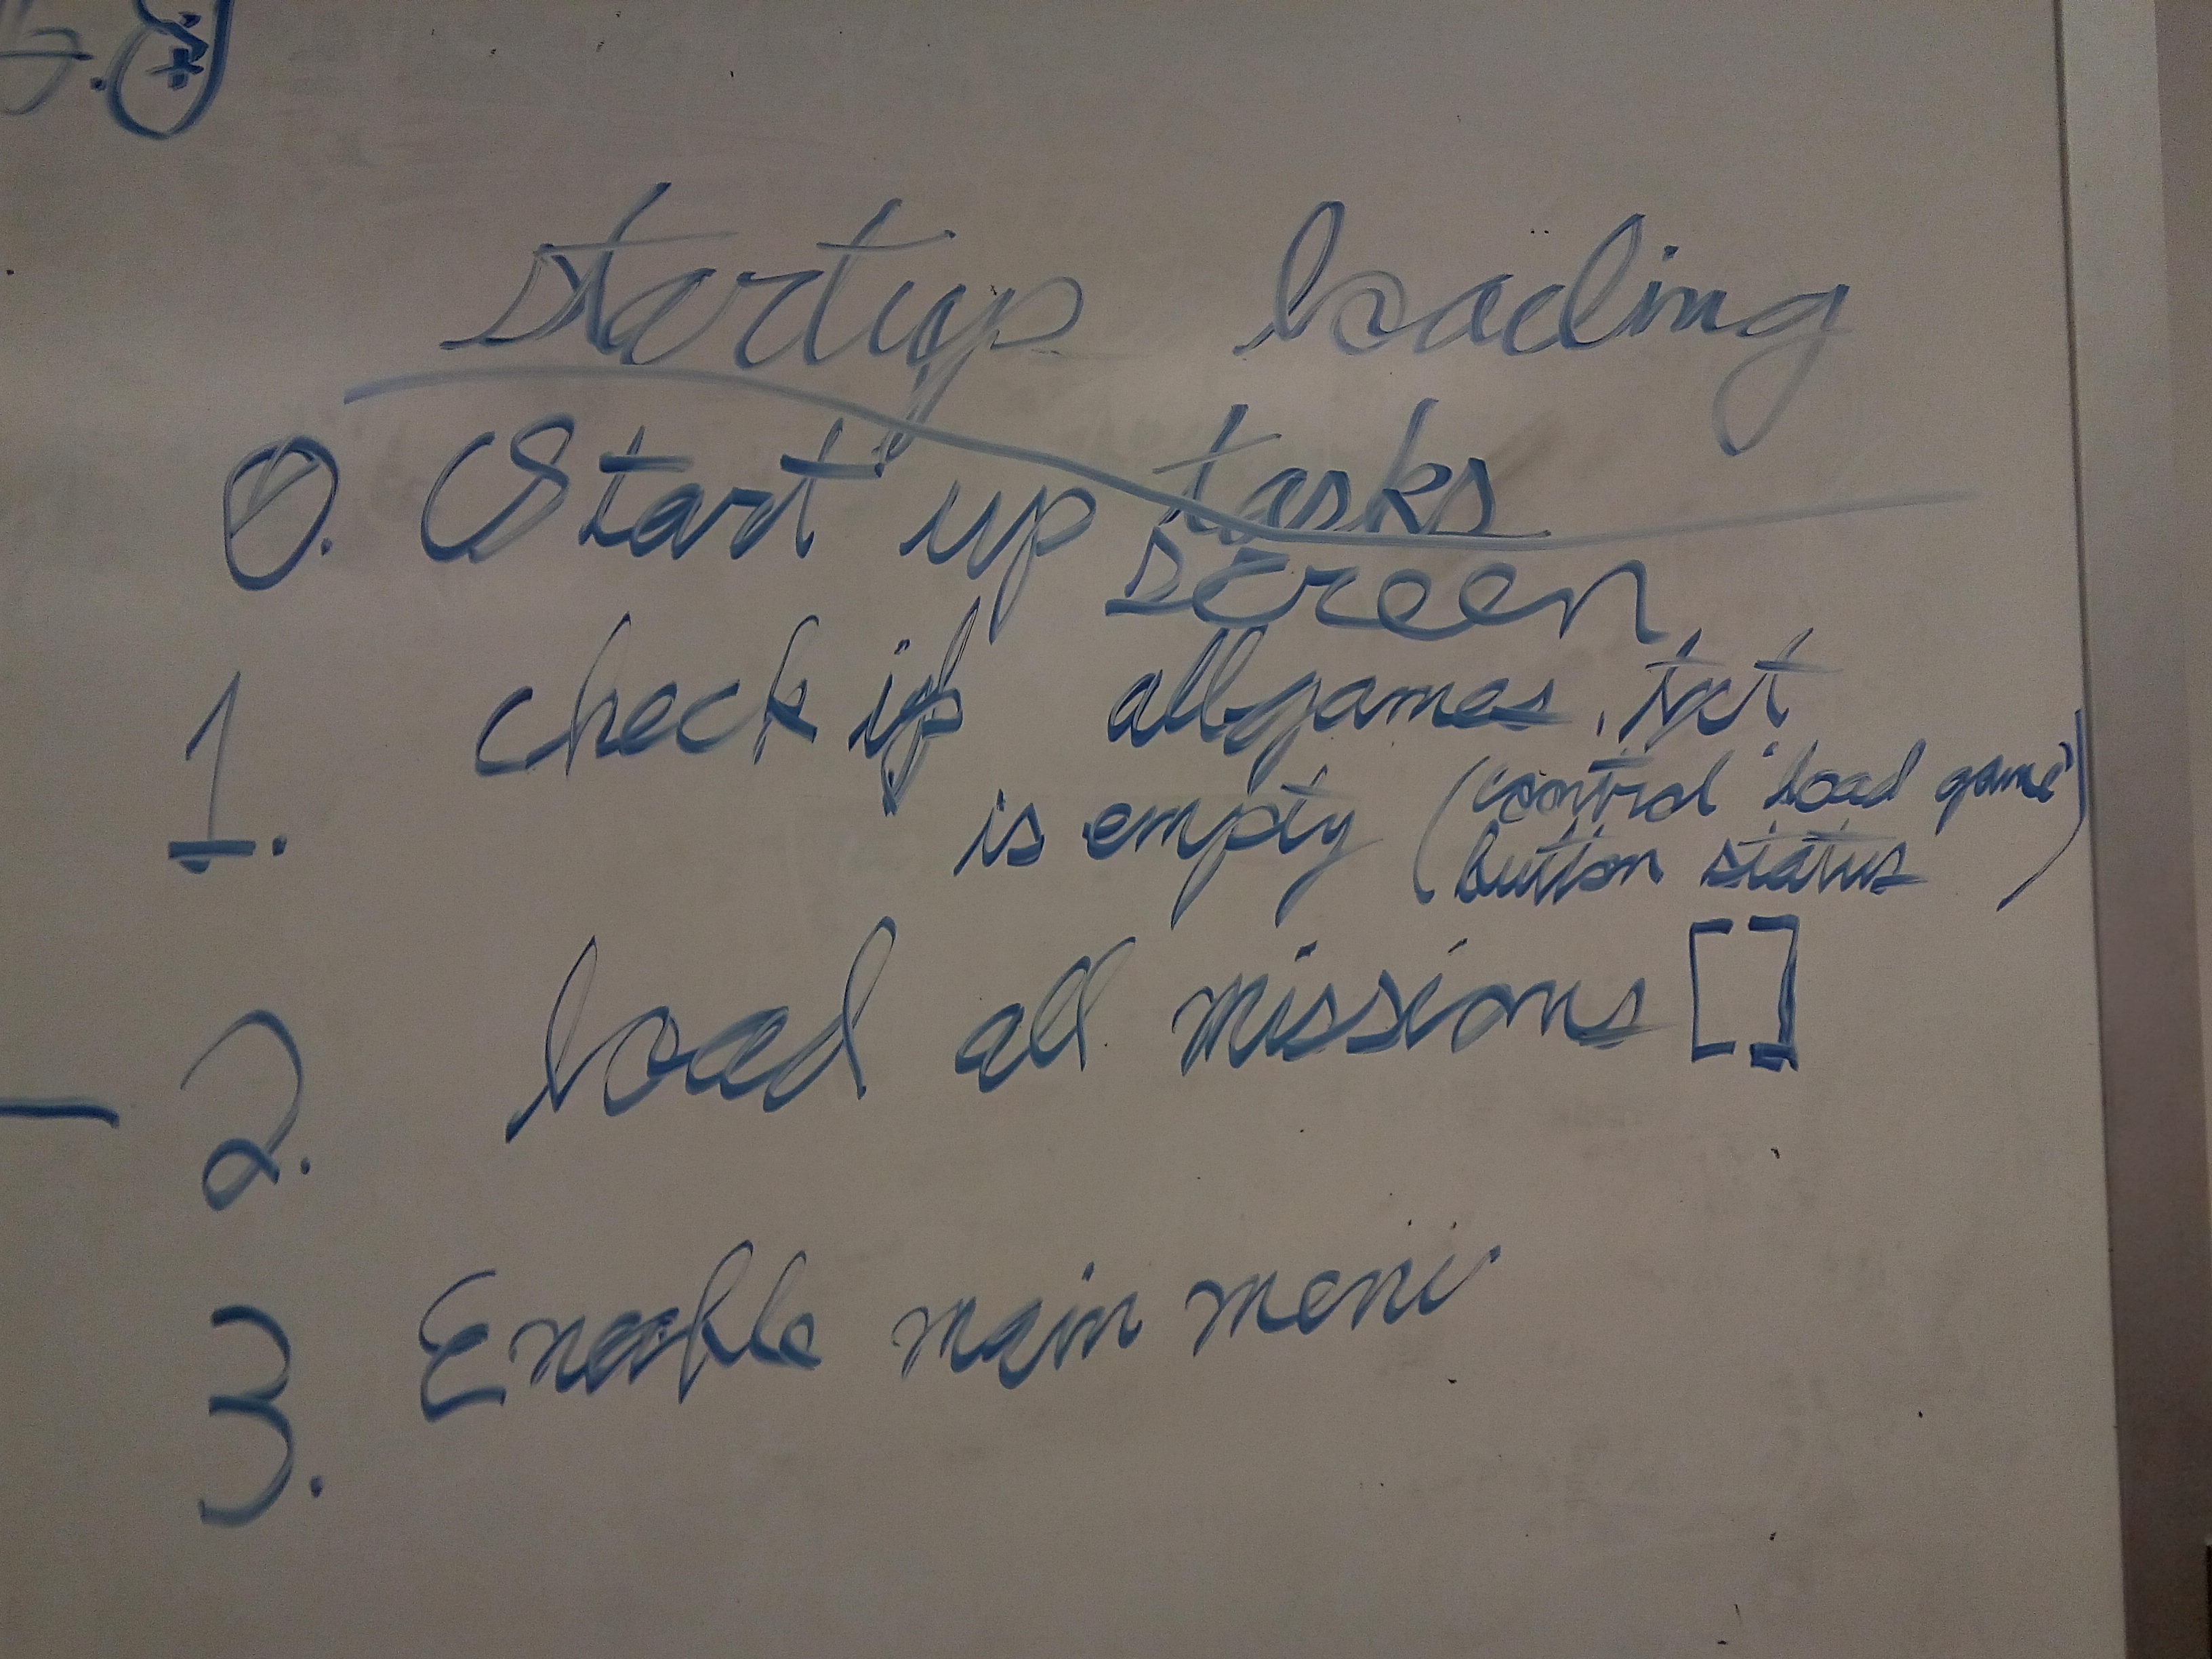 startup loading
tasks
0. Start up screen
1. check if allgames.txt
is empty (control "load game"
button status)
2. load all missions []
3. Enable main menu